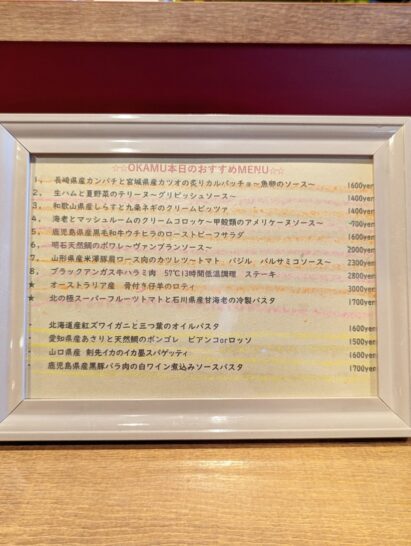 ☆☆OKAMU本日のおすすめMENU☆☆
1、長崎県産カンパチと宮城県産カツオの炙りカルパッチョ～魚卵のソース～ 1600yen
2、生ハムと夏野菜のテリーヌ～グリビッシュソース～ 1400yen
3、和歌山県産しらすと九条ネギのクリームピッツァ 1400yen
4、海老とマッシュルームのクリームコロッケ～甲殻類のアメリケーヌソース～ 700yen
5、鹿児島県産黒毛和牛ウチヒラのローストビーフサラダ 1600yen
6、明石天然鯛のポワレ～ヴァンブランソース～ 2000yen
7、山形県産米澤豚肩ロース肉のカツレツ～トマト バジル バルサミコソース～ 2300yen
8、ブラックアンガス牛ハラミ肉 57℃13時間低温調理 ステーキ 2800yen
★ オーストラリア産 骨付き仔羊のロティ 3000yen
★ 北の極スーパーフルーツトマトと石川県産甘海老の冷製パスタ 1700yen
北海道産紅ズワイガニと三つ葉のオイルパスタ 1600yen
愛知県産あさりと天然鯛のボンゴレ ビアンコorロッソ 1500yen
山口県産 剣先イカのイカ墨スパゲッティ 1600yen
鹿児島県産黒豚バラ肉の白ワイン煮込みソースパスタ 1700yen